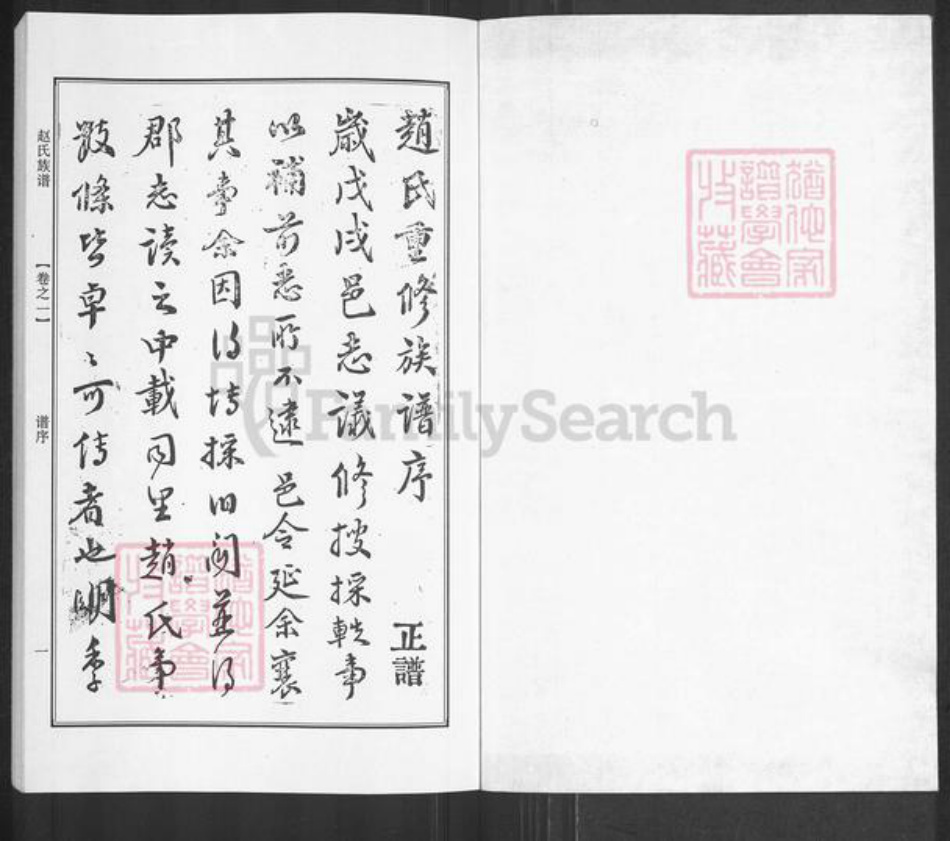 趙氏重修族譜序 正譜
歲戊戌邑志議修搜採軼事
以補前志所不逮邑令延余襄
其事余因得博採旧闻並得
郡志读之中載同里趙氏事
数條皆卓々可传者也明季
赵氏族谱
【卷之一】
谱序
一
猶他家
譜學會
收藏
猶他家
譜學會
收藏
FamilySearch